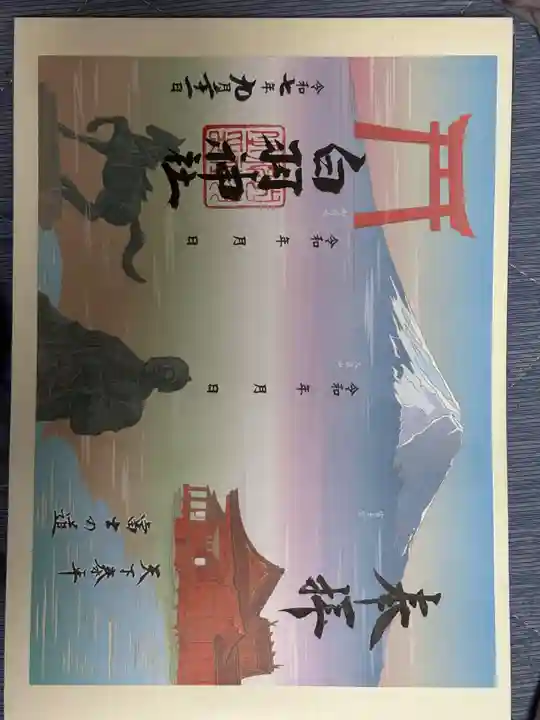 奉拝
富士の道
天下泰平
令和 年 月 日
令和 年 月 日
白羽神社
令和七年九月二十一日